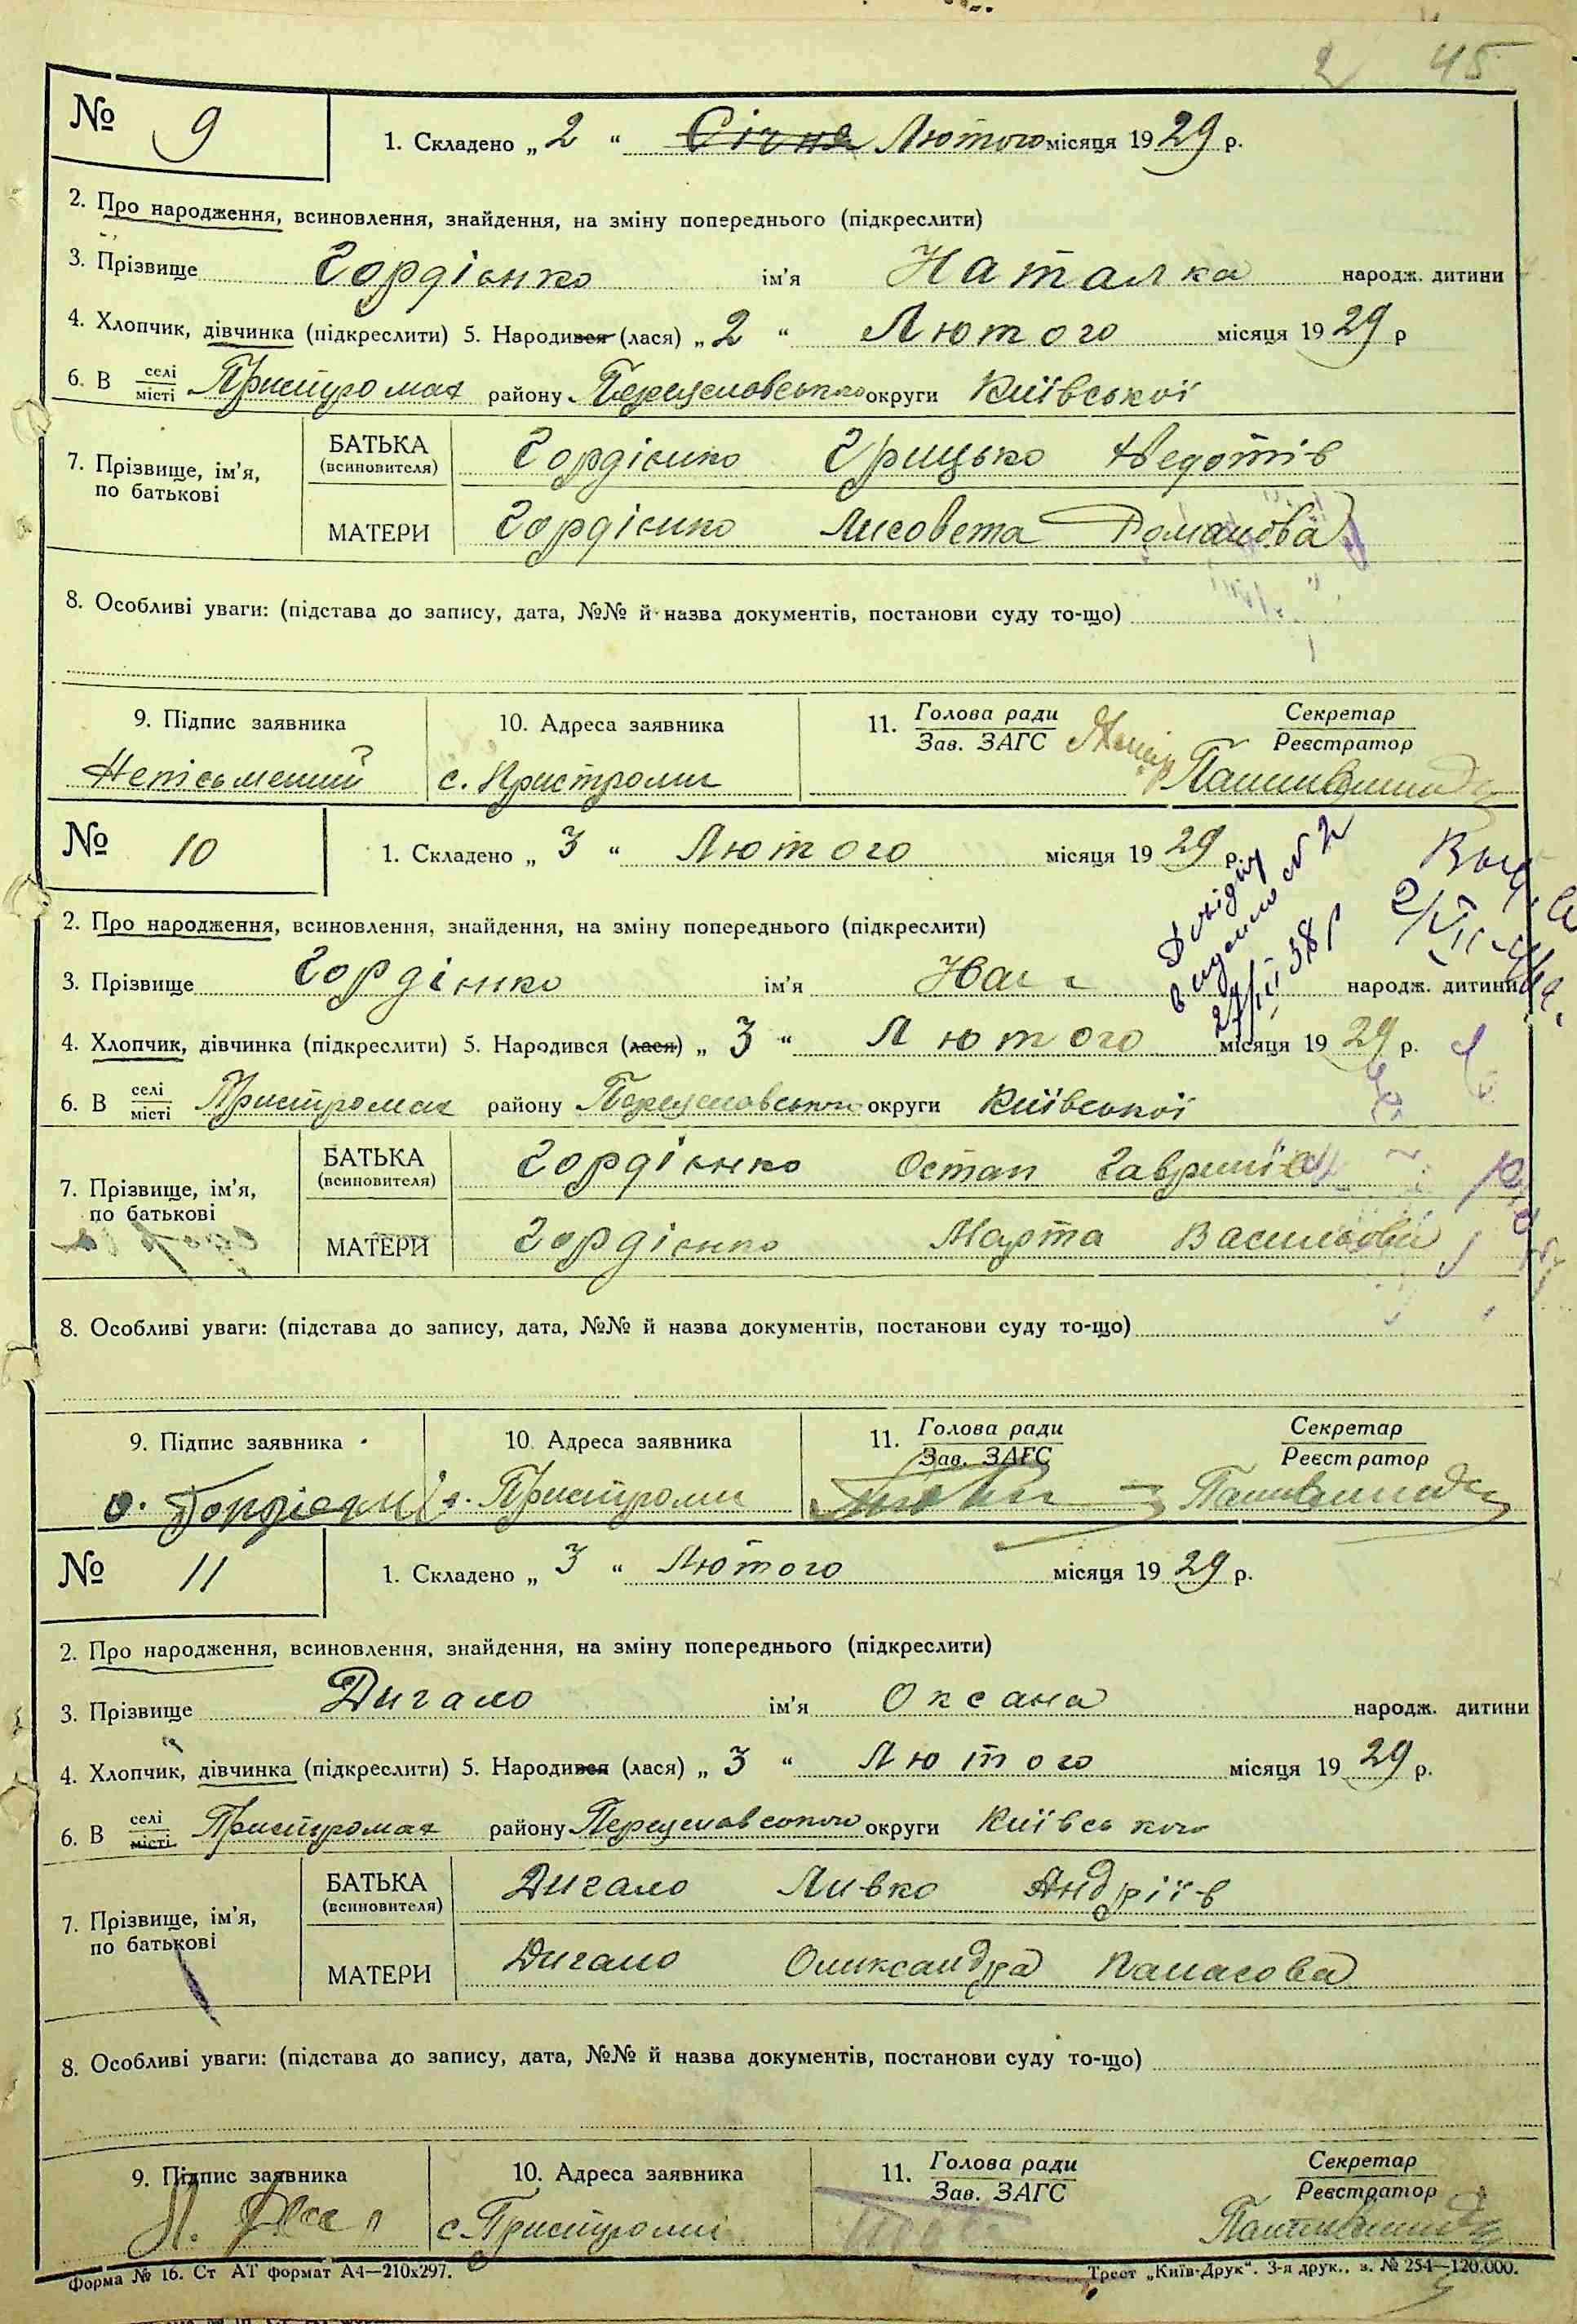 2 45
№ 9
1. Складено „ 2 “ Січня Лютого місяця 1929 р.
2. Про народження, всиновлення, знайдення, на зміну попереднього (підкреслити)
3. Прізвище Гордієнко ім'я Наталка народж. дитини
4. Хлопчик, дівчинка (підкреслити) 5. Народився (лася) „ 2 “ Лютого місяця 1929 р
6. В селі місті Пристромах району Переяславського округи Київської
7. Прізвище, ім'я, по батькові
БАТЬКА (всиновителя) Гордієнко Грицько Федотів
МАТЕРИ Гордієнко Лисовета Романова
8. Особливі уваги: (підстава до запису, дата, №№ й назва документів, постанови суду то-що)
9. Підпис заявника 10. Адреса заявника 11. Голова ради Зав. ЗАГС Секретар Реєстратор
Неписьмений с. Пристроми
№ 10
1. Складено „ 3 “ Лютого місяця 1929 р.
Довідку
видано № 2
27/III 38 р
2. Про народження, всиновлення, знайдення, на зміну попереднього (підкреслити)
3. Прізвище Гордієнко ім'я народж. дитини
4. Хлопчик, дівчинка (підкреслити) 5. Народився (лася) „ 3 “ Лютого місяця 1929 р.
6. В селі місті Пристромах району Переяславського округи Київської
7. Прізвище, ім'я, по батькові
БАТЬКА (всиновителя) Гордієнко Остап Гаврилів
МАТЕРИ Гордієнко Марта Василькова
8. Особливі уваги: (підстава до запису, дата, №№ й назва документів, постанови суду то-що)
9. Підпис заявника 10. Адреса заявника 11. Голова ради Зав. ЗАГС Секретар Реєстратор
О. Гордієнко с. Пристроми
№ 11
1. Складено „ 3 “ Лютого місяця 1929 р.
2. Про народження, всиновлення, знайдення, на зміну попереднього (підкреслити)
3. Прізвище Дигало ім'я Оксана народж. дитини
4. Хлопчик, дівчинка (підкреслити) 5. Народився (лася) „ 3 “ Лютого місяця 1929 р.
6. В селі місті Пристромах району Переяславського округи Київсько
7. Прізвище, ім'я, по батькові
БАТЬКА (всиновителя) Дигало Ливко Андріїв
МАТЕРИ Дигало Олександра Панасова
8. Особливі уваги: (підстава до запису, дата, №№ й назва документів, постанови суду то-що)
9. Підпис заявника 10. Адреса заявника 11. Голова ради Зав. ЗАГС Секретар Реєстратор
с. Пристромі
Форма № 16. Ст АТ формат А4—210х297. Трест „Київ-Друк“. 3-я друк., з. № 254—120.000.